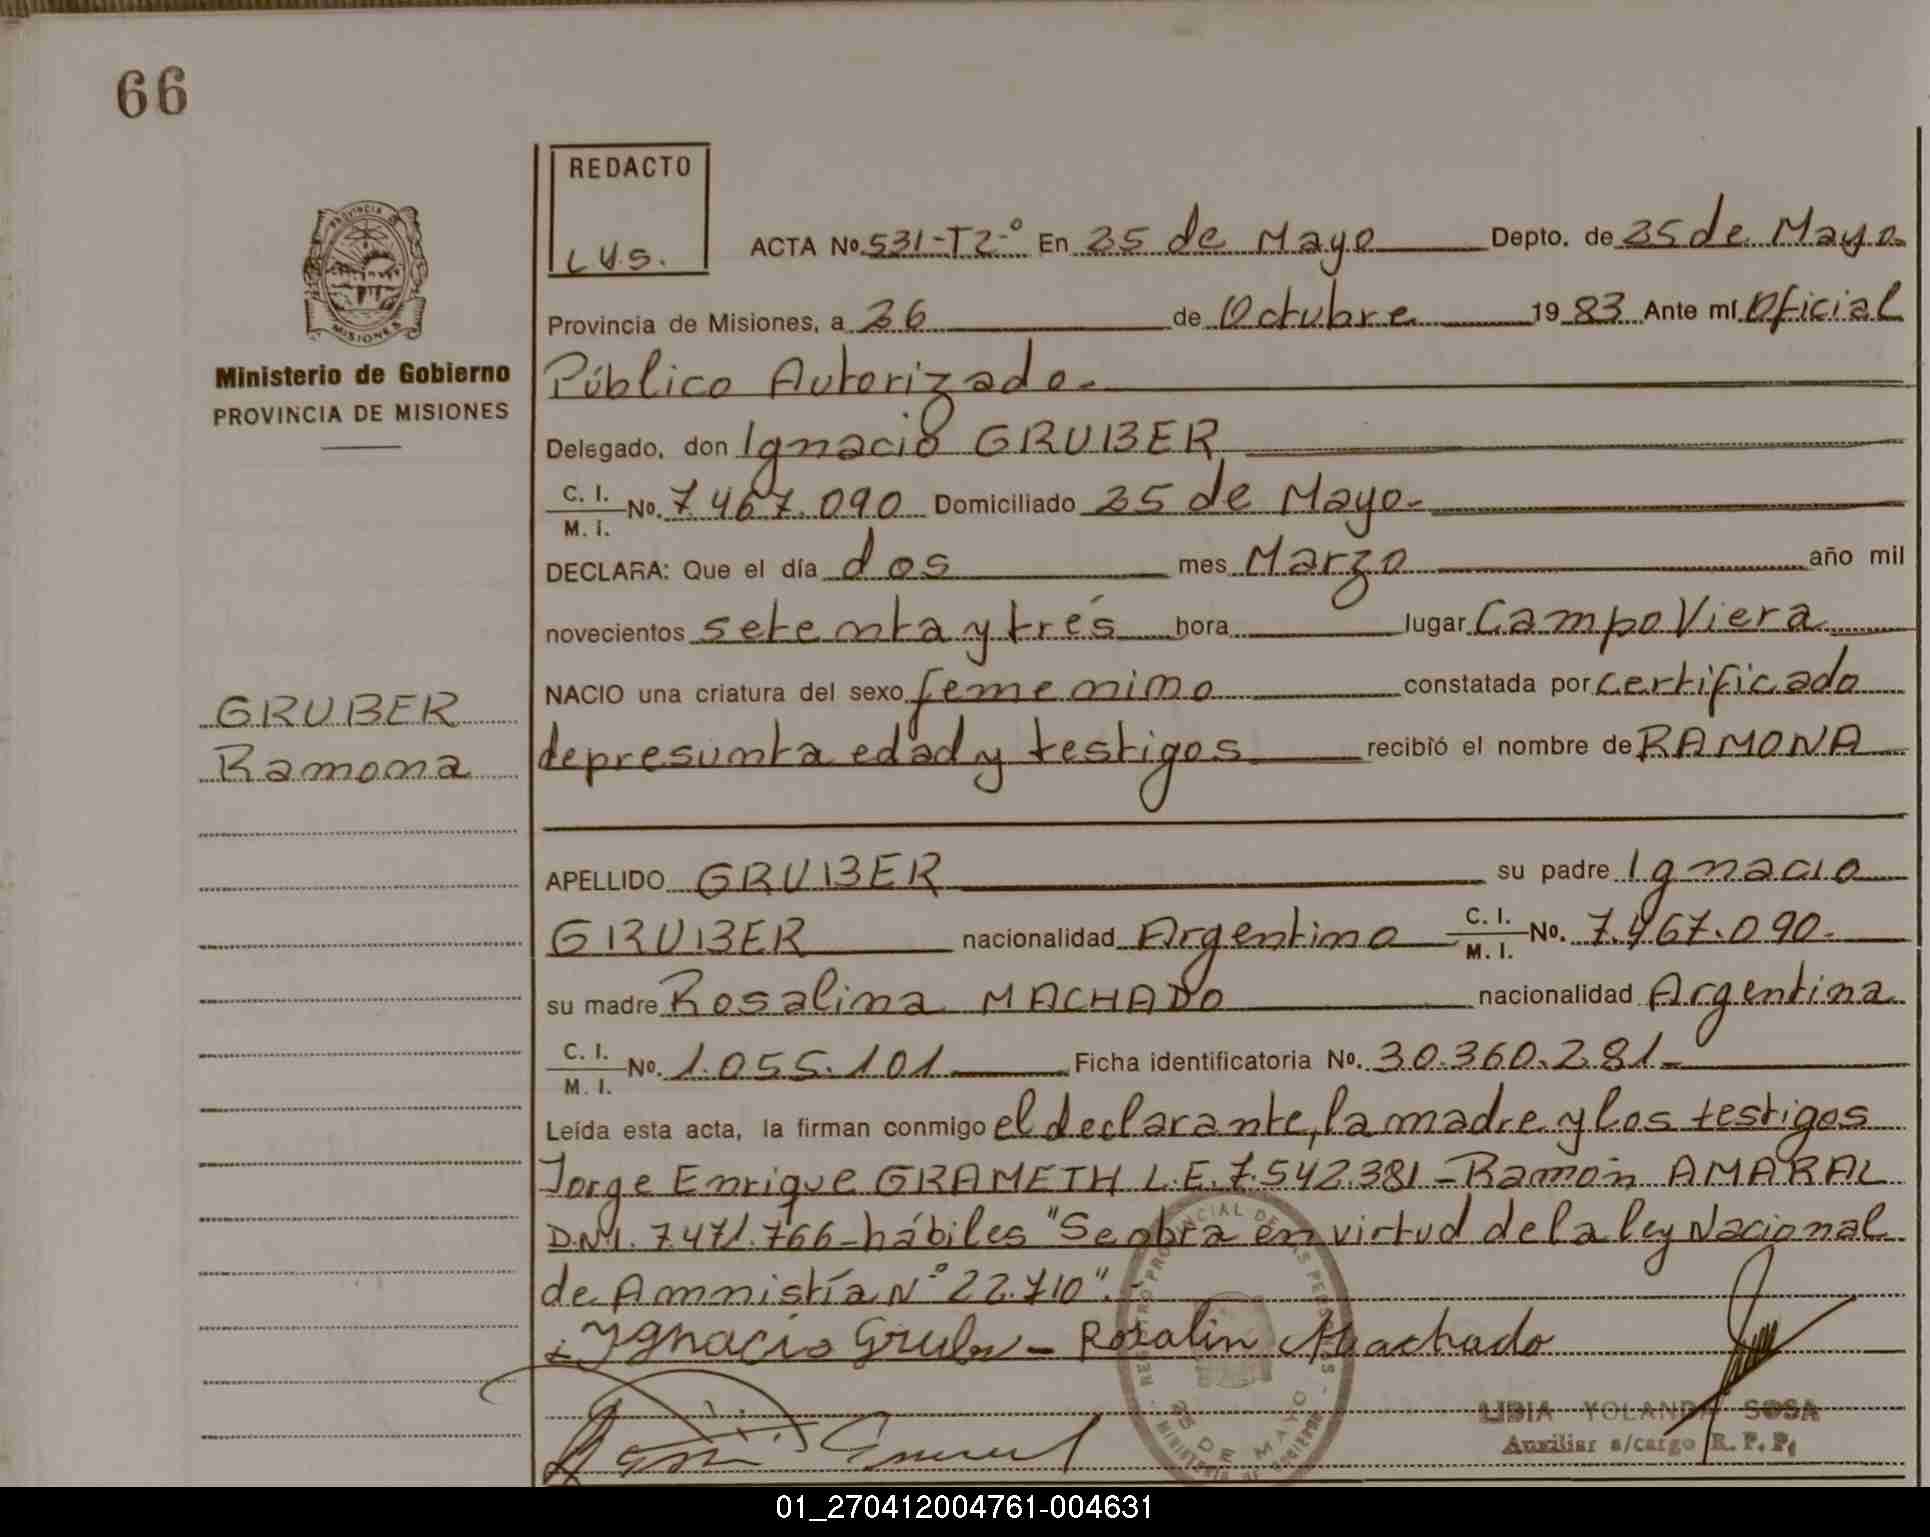 66
REDACTO
L.Y.S.
ACTA No. 531-T2-° En 25 de Mayo Depto. de 25 de Mayo
Provincia de Misiones, a 26 de Octubre 1983 Ante mí Oficial
Público Autorizado.-
Delegado, don Ignacio GRUBER
C. I. / M. I. No. 7.467.090 Domiciliado 25 de Mayo-
DECLARA: Que el día dos mes Marzo año mil
novecientos setenta y trés hora lugar Campo Viera
NACIO una criatura del sexo femenino constatada por certificado
de presunta edad y testigos recibió el nombre de RAMONA
APELLIDO GRUBER su padre Ignacio
GRUBER nacionalidad Argentino C. I. / M. I. No. 7.467.090.
su madre Rosalina MACHADO nacionalidad Argentina
C. I. / M. I. No. 1.055.101 Ficha identificatoria No. 30.360.281-
Leída esta acta, la firman conmigo el declarante, la madre y los testigos
Jorge Enrique GRAMETH L.E. 7.542.381 - Ramón AMARAL
D.N.I. 7.471.766 - hábiles "Se obra en virtud de la ley Nacional
de Amnistía N° 22.710".-
Ignacio Gruber - Rosalin Machado
PROVINCIA DE
MISIONES
Ministerio de Gobierno
PROVINCIA DE MISIONES
GRUBER
Ramona
REGISTRO PROVINCIAL DE LAS PERSONAS
25 DE MAYO
MINISTERIO DE GOBIERNO
LIDIA YOLANDA SOSA
Auxiliar a/cargo R. P. P.
01_270412004761-004631